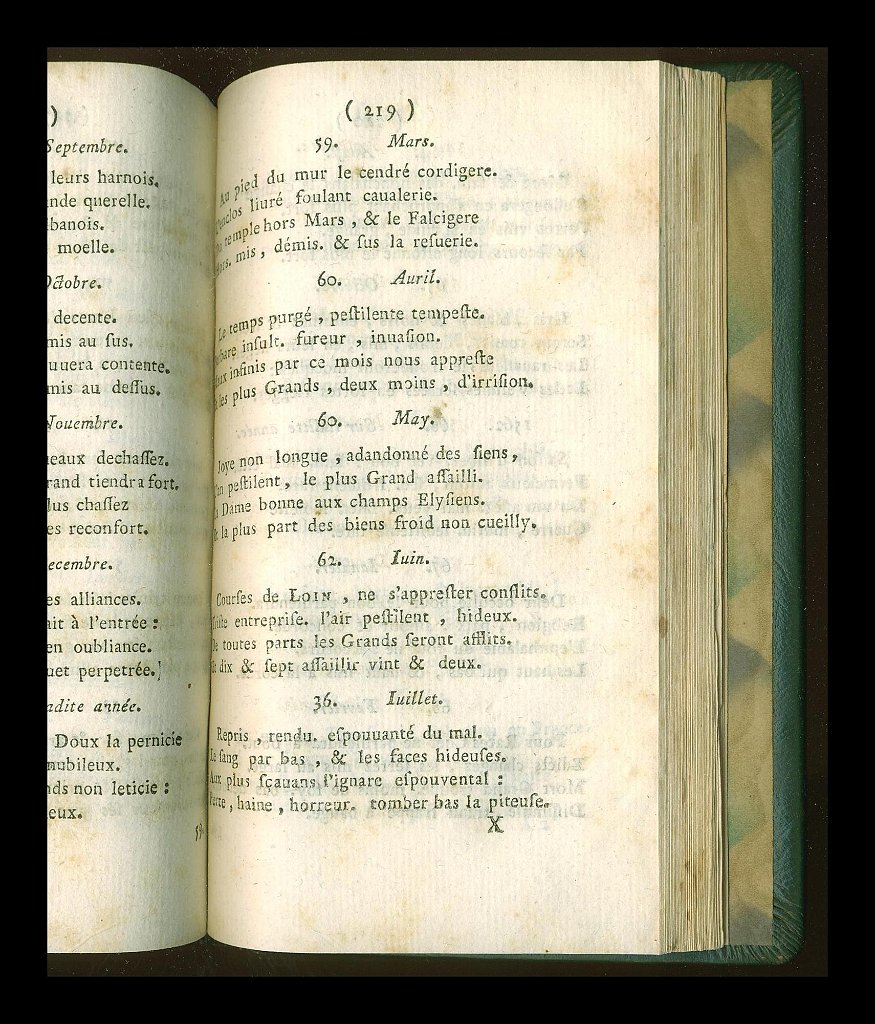 )
Septembre.
leurs harnois.
nde querelle.
banois.
moelle.
Octobre.
decente.
mis au ſus.
uuera contente.
mis au deſſus.
Nouembre.
eaux dechaſſez.
rand tiendra fort.
lus chaſſez
es reconfort.
ecembre.
es alliances.
ait à l'entrée :
en oubliance.
uet perpetrée.]
adite année.
Doux la pernicie
nubileux.
nds non leticie :
eux.
59.
( 219 )
59. Mars.
Au pied du mur le cendré cordigere.
L'enclos liuré foulant caualerie.
Du temple hors Mars , & le Falcigere
Hors. mis , démis. & ſus la reſuerie.
60. Auril.
Le temps purgé , peſtilente tempeſte.
Barbare inſult. fureur , inuaſion.
Maux infinis par ce mois nous appreſte
Et les plus Grands , deux moins , d'irriſion.
60. May.
Joye non longue , adandonné des ſiens,
L'an peſtilent, le plus Grand aſſailli.
La Dame bonne aux champs Elyſiens.
Et la plus part des biens froid non cueilly.
62. Iuin.
Courſes de LOIN , ne s'appreſter conflits.
Triſte entrepriſe. l'air peſtilent , hideux.
De toutes parts les Grands ſeront afflits.
Et dix & ſept aſſaillir vint & deux.
36. Iuillet.
Repris , rendu. eſpouuanté du mal.
Le ſang par bas , & les faces hideuſes.
Aux plus ſçauans l'ignare eſpouvental :
Perte , haine , horreur. tomber bas la piteuſe.
X